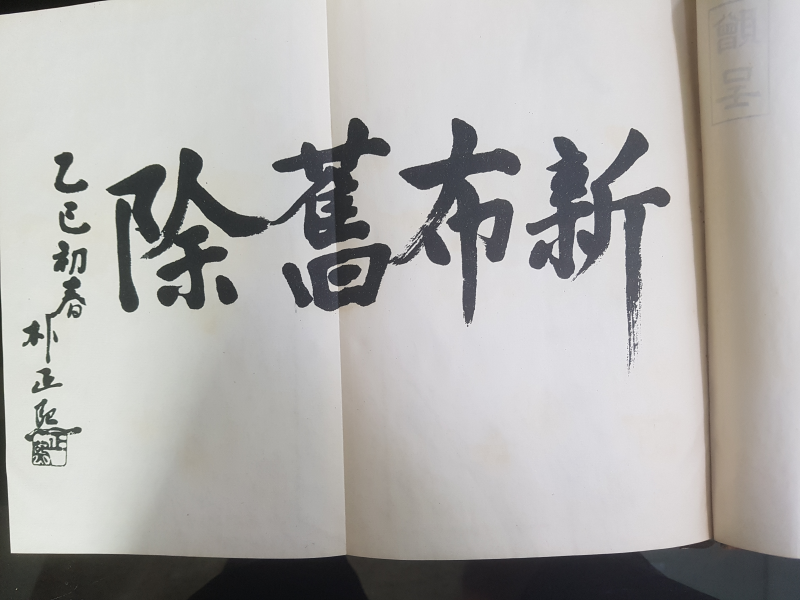 除舊布新
乙巳初春
朴正熙
正熙
贈呈